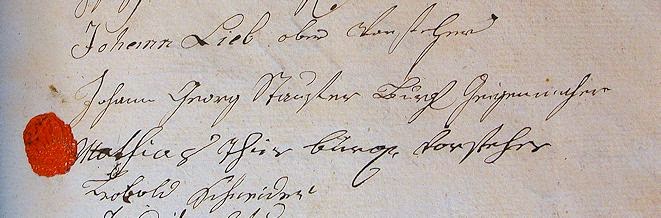 Johann Lieb ober Vorsteher
Johann Georg Staufer Burgl Geigenmacher
Mathias Thir burgr. Vorsteher
Leobold Schneider